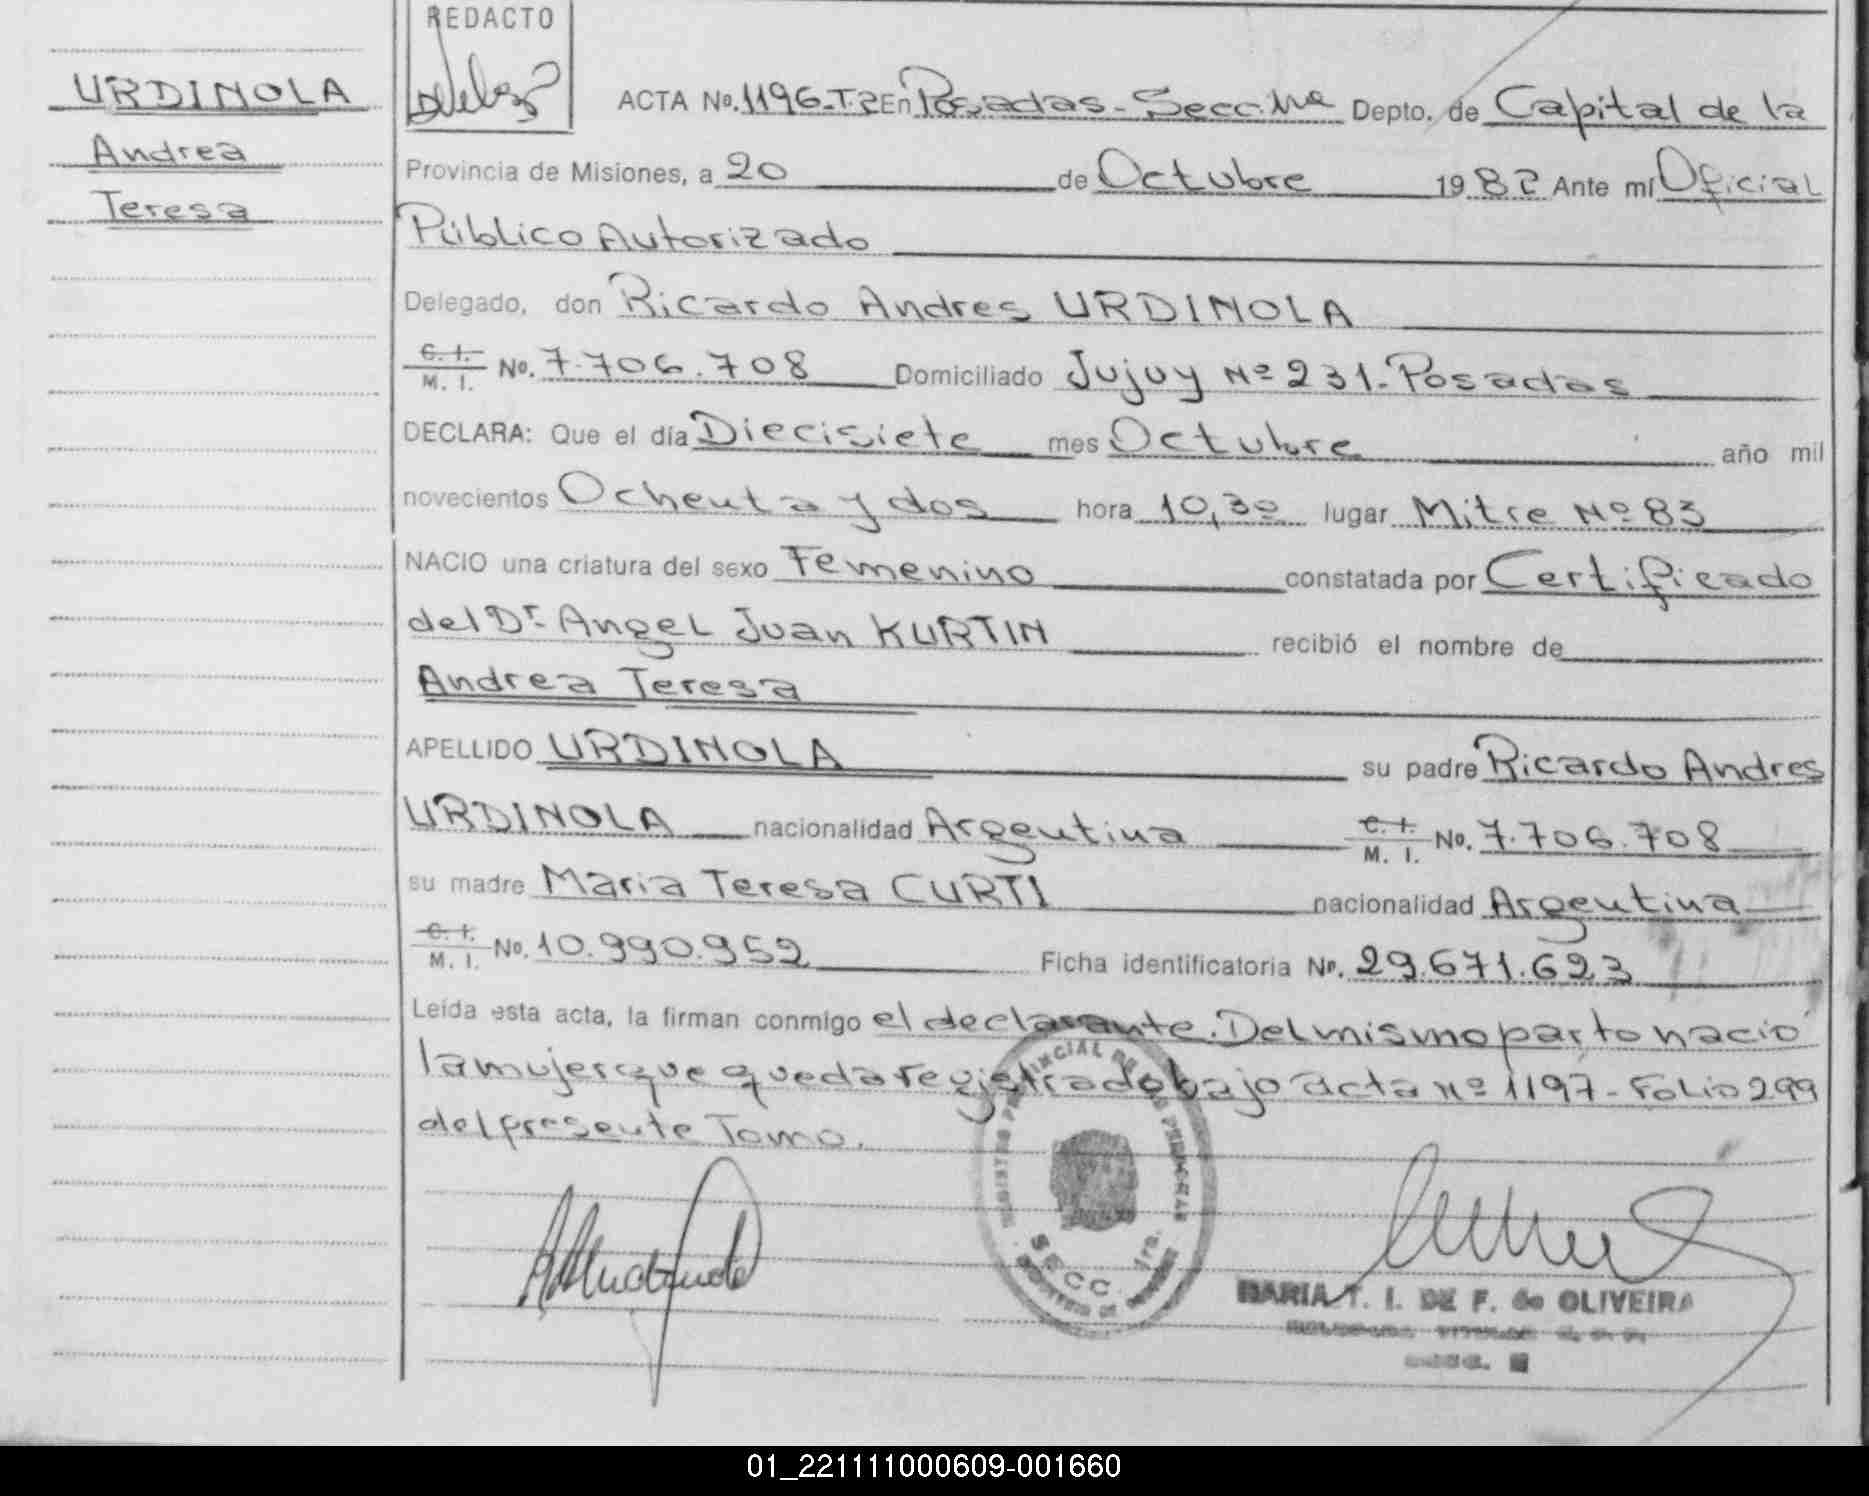 REDACTO
URDINOLA
Andrea
Teresa
ACTA No. 1196-T.2 En Posadas - Secc. 1ra Depto. de Capital de la
Provincia de Misiones, a 20 de Octubre 1982 Ante mí Oficial
Público Autorizado
Delegado, don Ricardo Andres URDINOLA
C. I. M. I. No. 7.706.708 Domiciliado Jujuy Nº 231. Posadas
DECLARA: Que el día Diecisiete mes Octubre año mil
novecientos Ochenta y dos hora 10,30 lugar Mitre Nº 83
NACIO una criatura del sexo Femenino constatada por Certificado
del Dr. Angel Juan KURTIN recibió el nombre de
Andrea Teresa
APELLIDO URDINOLA su padre Ricardo Andres
URDINOLA nacionalidad Argentina C. I. M. I. No. 7.706.708
su madre Maria Teresa CURTI nacionalidad Argentina
C. I. M. I. No. 10.990.952 Ficha identificatoria No. 29.671.623
Leída esta acta, la firman conmigo el declarante. Del mismo parto nació
la mujer que queda registrada bajo acta Nº 1197 - Folio 299
del presente Tomo.
REGISTRO PROVINCIAL DE LAS PERSONAS
SECC. 1ra.
MARIA T. I. DE F. de OLIVEIRA
01_221111000609-001660